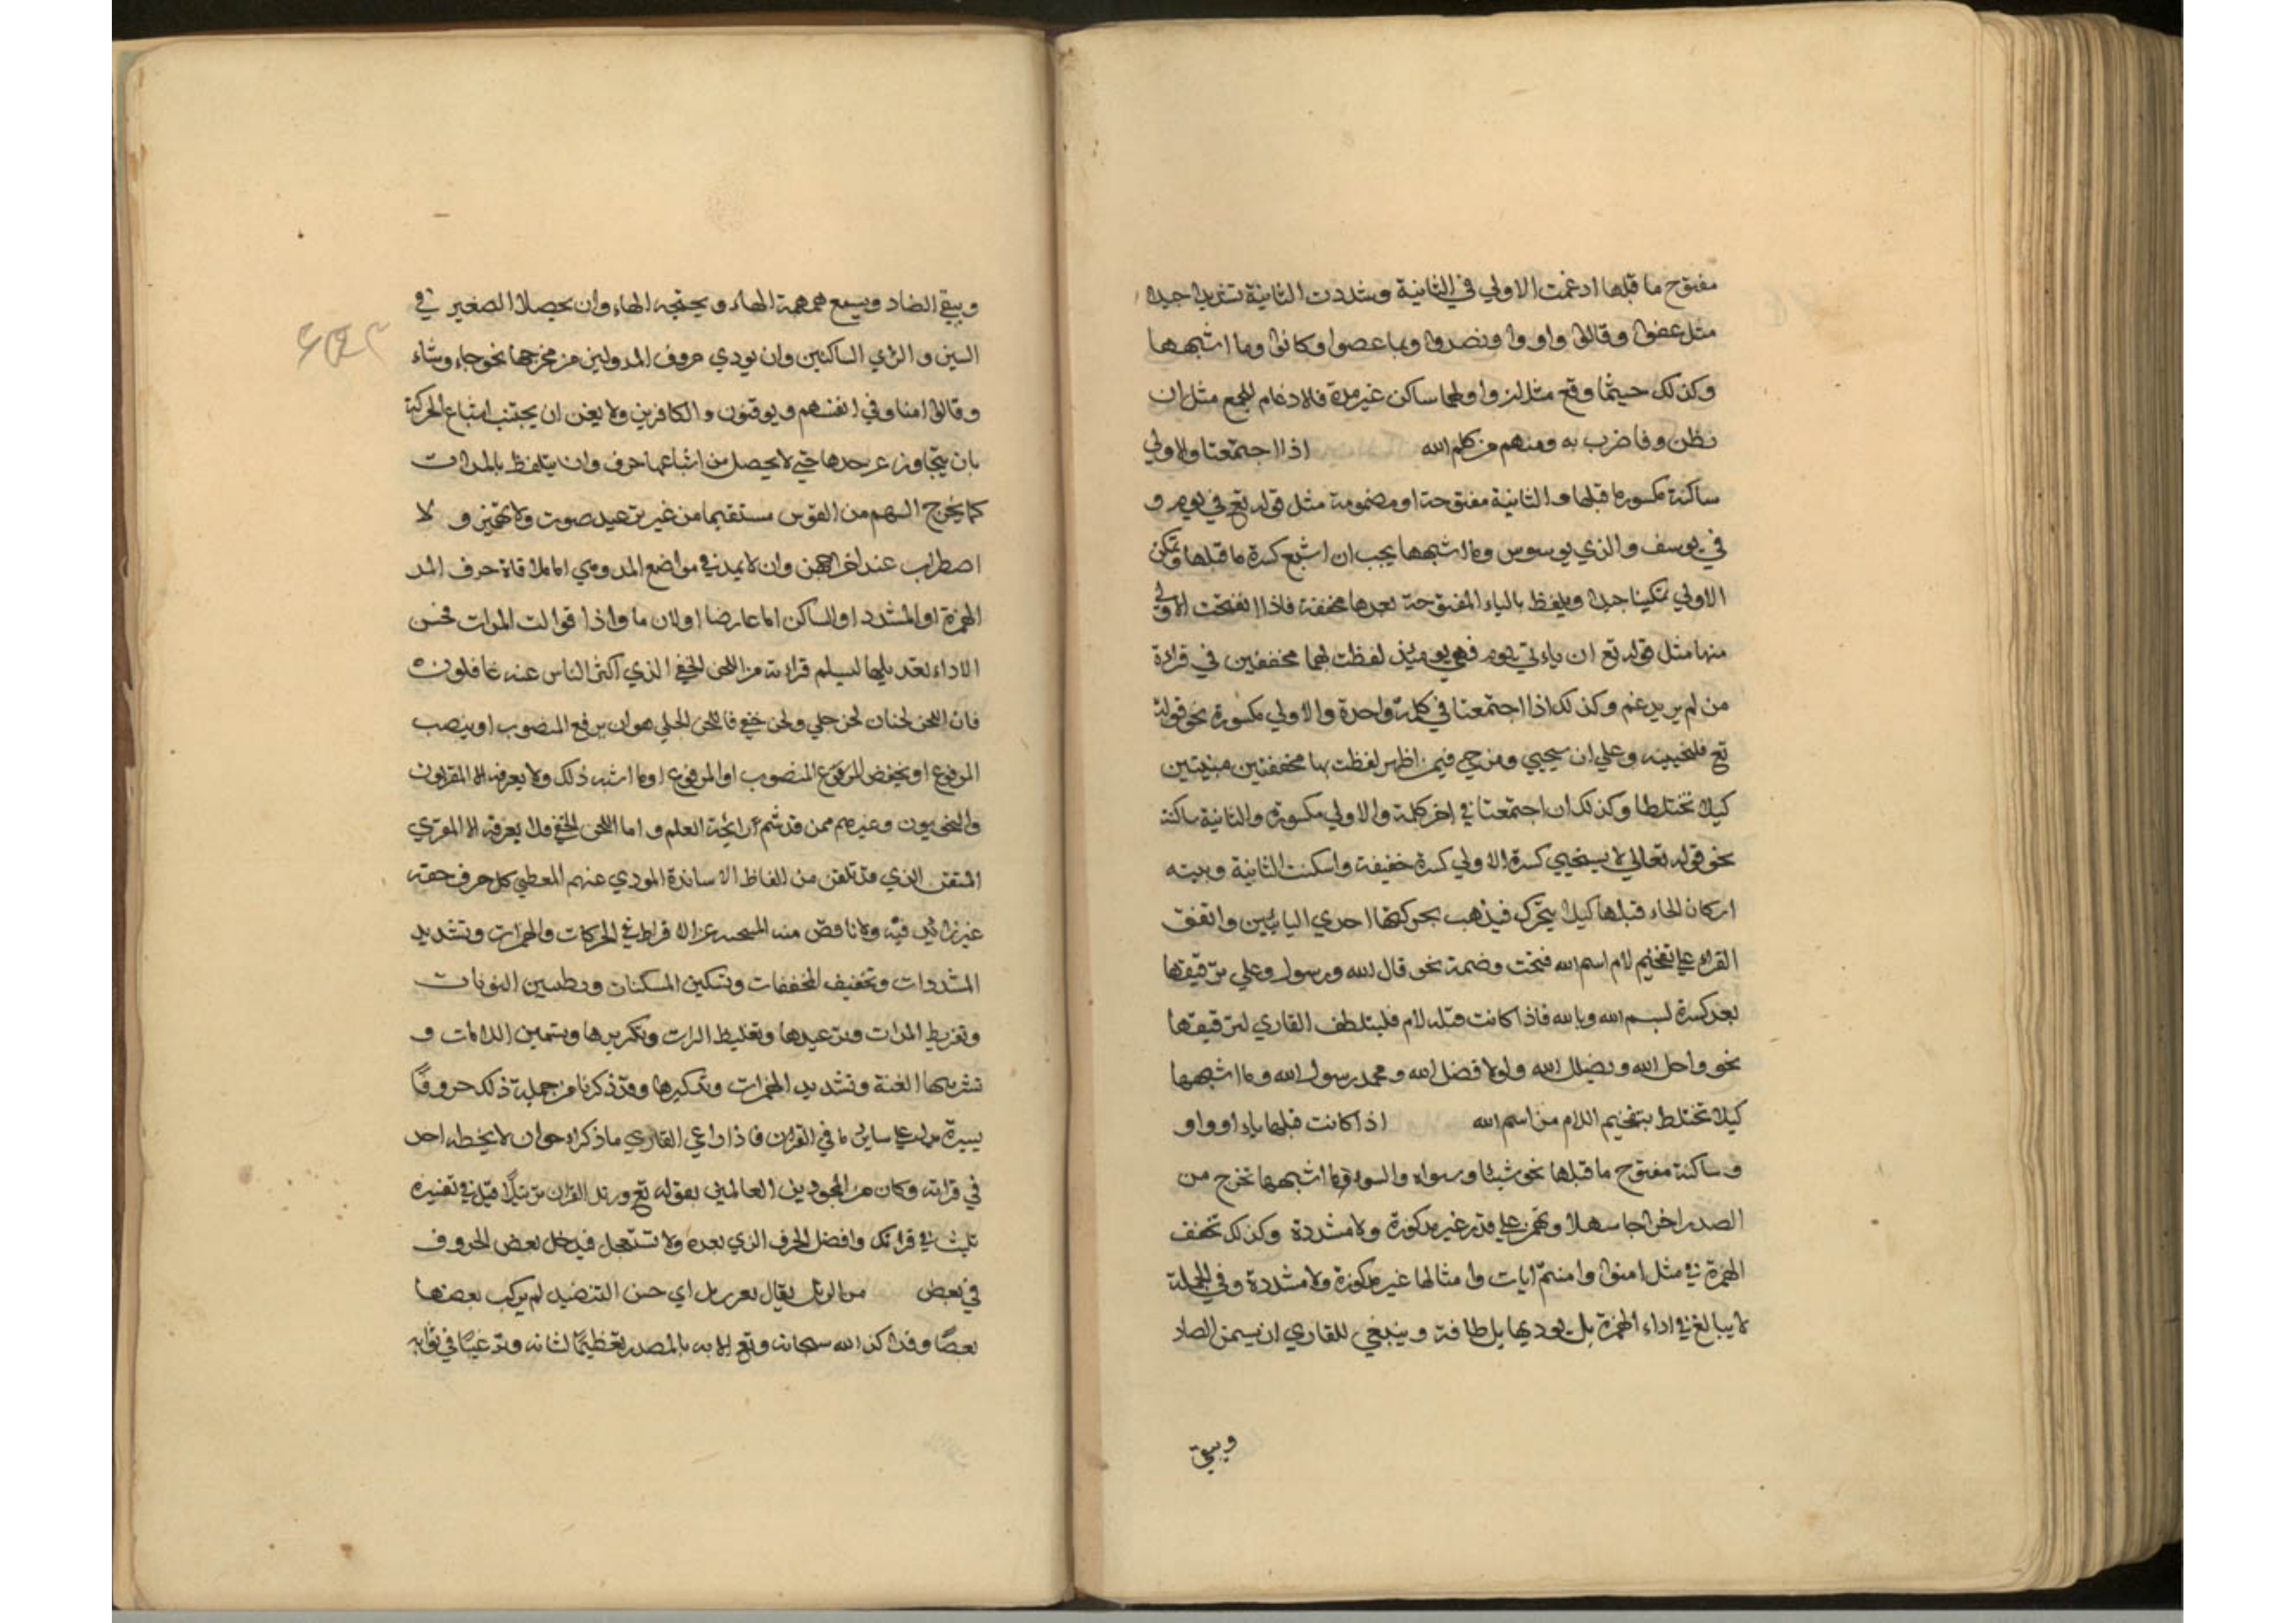 مفتوح ما قبلها ادغمت الاولي في الثانية وشددت الثانية تشديدا جيدا
مثل عفوا وقالوا واووا ونصروا وبما عصوا وكانوا وما اشبهها
وكذلك حيثما وقع مثلان واولهما ساكن غير مدة فالادغام للجميع مثل ان
نظن وفاضرب به ومنهم من كلم الله اذا اجتمعتا والاولي
ساكنة مكسورة ما قبلها والثانية مفتوحة او مضمومة مثل قوله تع في يوم و
في يوسف والذي يوسوس وما اشبهها يجب ان اشبع كسرة ما قبلها وتمكن
الاولي تمكينا جيدا ويلفظ بالياء المفتوحة بعدها مخففة فاذا انفتحت الاولي
منها مثل قوله تع ان ياءتي يوم فهي يومئذ لفظت بهما مخففين في قراءة
من لم يريد غم وكذلك اذا اجتمعتا في كلمة واحدة والاولي مكسورة نحو قوله
تع فلنحيينه وعلي ان يحيي ومن حي فيمن اظهر لفظت بها مخففتين مبنيتين
كيلا تختلطا وكذلك ان اجتمعتا في اخر كلمة والاولي مكسورة والثانية ساكنة
نحو قوله تعالي لا يستحيي كسرة الاولي كسرة خفيفة واسكنت الثانية وبينه
ان كان الحاء قبلها كيلا يتحرك فيذهب بحركتها احدي اليائين واتفق
القراء علي تفخيم لام اسم الله فتحت وضمة نحو قال الله ورسول وعلي ترقيقها
بعد كسرة بسم الله وبالله فاذا كانت قبله لام فليتلطف القاري لترقيقها
نحو واحل الله ويضلل الله ولولا فضل الله ومحمد رسول الله وما اشبهها
كيلا تختلط بتفخيم اللام من اسم الله اذا كانت قبلها ياء او واو
وساكنة مفتوح ما قبلها نحو شيئا وسواه والسوء وما اشبهها تخرج من
الصدر اخراجا سهلا وتهمز علي قدر غير مركوزة ولا مشددة وكذلك تخفف
الهمزة في مثل امنوا وامنتم ايات وامثالها غير مركوزة ولا مشددة وفي الجملة
لا يبالغ في اداء الهمزة بل يوديها بلطافة وينبغي للقاري ان يسمن الصاد
ويبقي
ويبقي الضاد ويسمع همهمة الهاء ويحتجه الهاء وان يحصلا الصغير في
السين والزاي الساكنين وان يودي حروف المد ولين من مخرجها نحو جاء وشاء
وقالوا امنا وفي انفسهم ويوقنون والكافرين ولا يغن ان يجتنب اشباع الحركة
بان يتجاوز عن حدها حتي لا يحصل من اشباعها حرف وان يتلفظ بالمدات
كما يخرج السهم من القوس مستقيما من غير ترعيد صوت ولا تهميز ولا
اصطراب عند اخرهن وان لا يمد في مواضع المد وهي اما ملاقاة حرف المد
الهمزة او المشدد او الساكن اما عارضا او لازما واذا توالت المدات فحسن
الاداء تعديلها ليسلم قراءته من اللحن الخفي الذي اكثر الناس عنه غافلون
فان اللحن لحنان لحن جلي ولحن خفي فاللحن الجلي هو ان يرفع المنصوب او ينصب
المرفوع او يخفض المرفوع المنصوب او المرفوع او ما اشبه ذلك ولا يعرفه الا المقريون
والنحويون وغيرهم ممن قد شم رائحة العلم واما اللحن الخفي فلا يعرفه الا المقري
المتقن الذي قد تلقن من الفاظ الاساتذة المودي عنهم المعطي كل حرف حقه
غير زائد فيه ولا ناقص منه المتجنب عن الافراط في الحركات والهمزات وتشديد
المشددات وتخفيف المخففات وتسكين المسكنات وتطنين النونات
وتفريط المدات وترعيدها وتغليظ الرات وتكريرها وتسمين اللامات و
تشريبها الغنة وتشديد الهمزات وتذكيرها وقد ذكرنا من جملة ذلك حروفا
يسيرة علي ساير ما في القران فاذا راعي القاري ما ذكرا رجو ان لا يخطه احد
في قراته وكان من المجودين العالمين بقوله تع ورتل القران ترتيلا قيل في تفسيره
تلبث في قراتك وافصل الحرف الذي بعده ولا تستعجل فيدخل بعض الحروف
في بعض من الرتل يقال ثغر رتل اي حسن التنضيد لم يركب بعضها
بعضا وقد اكد الله سبحانه وتع الامر به بالمصدر تعظيما لشانه وترغيبا في ثوابه